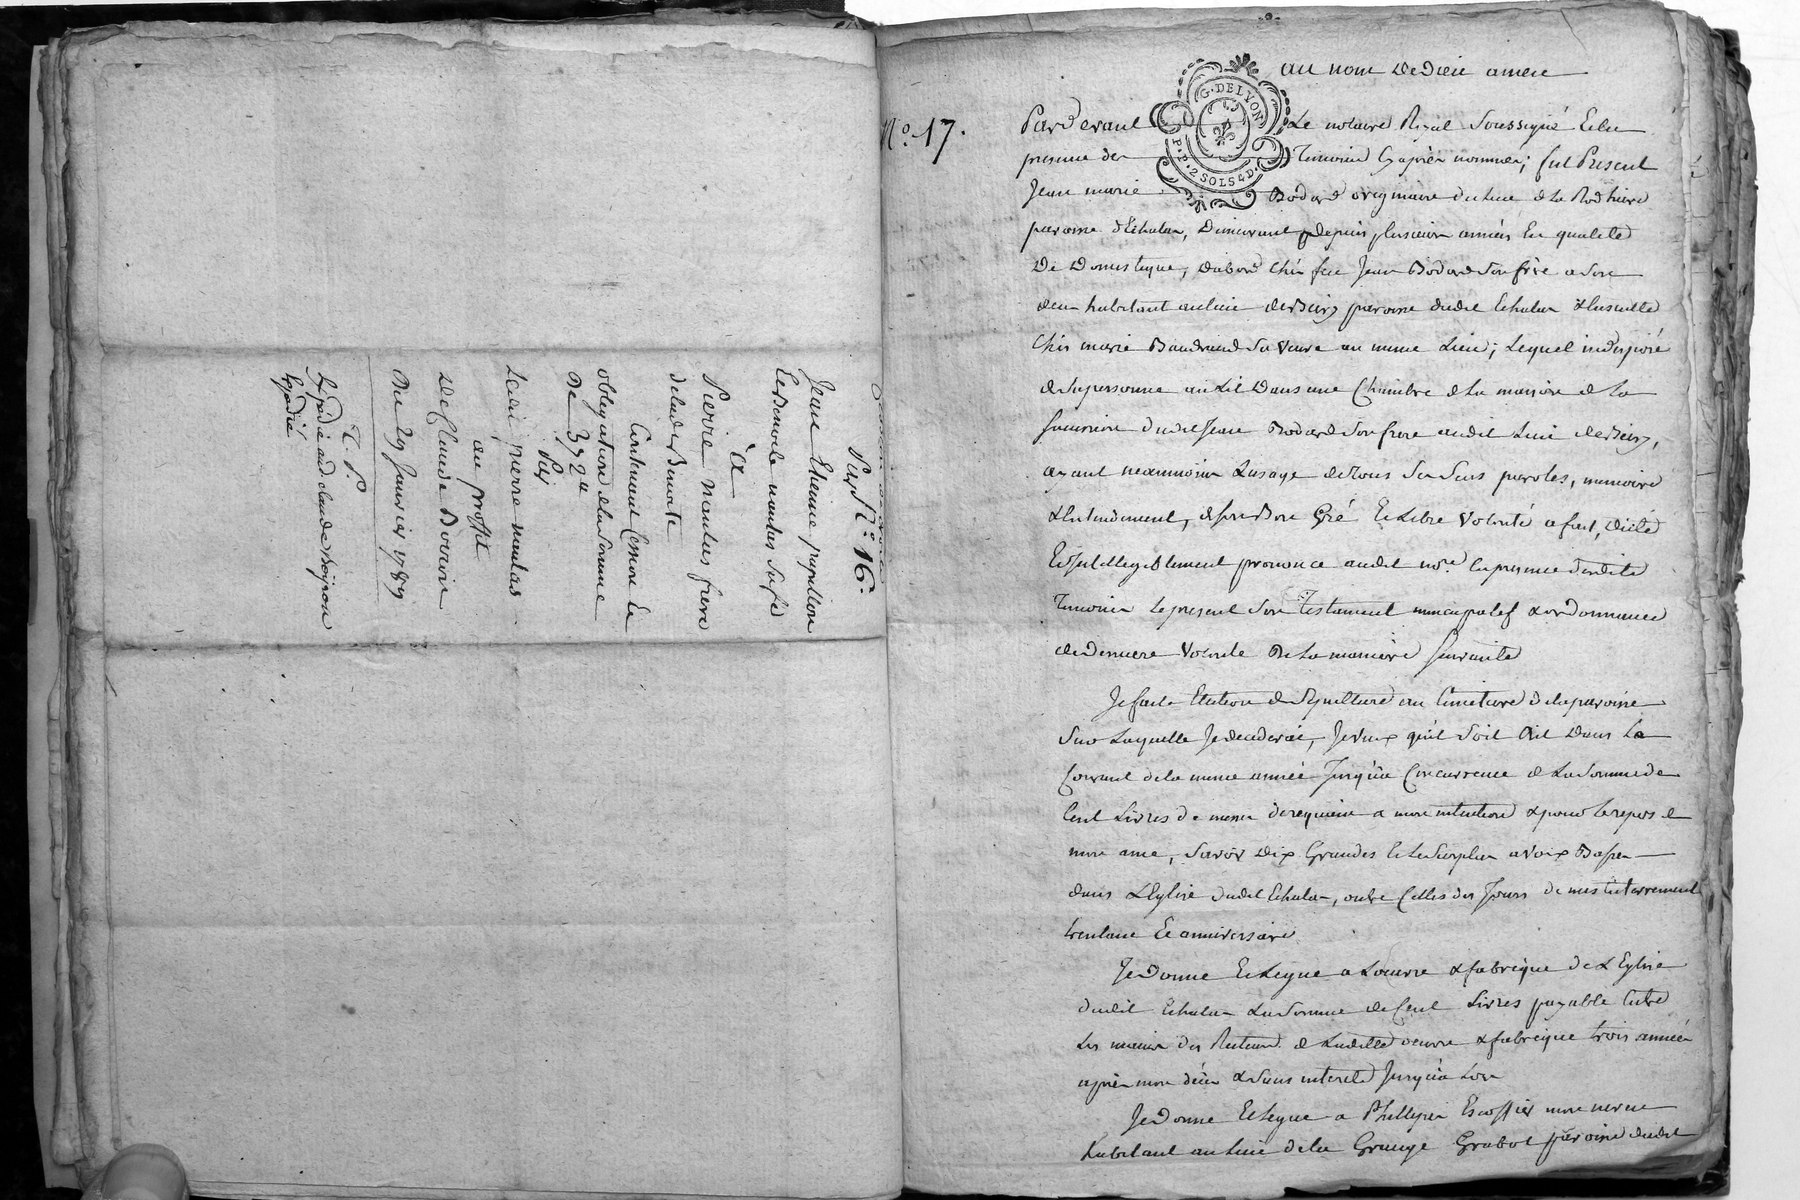 Par No. 16.
Jean Etienne papillon
et Benoite mantas sa fe
à
Pierre mantas frere
de lad. Benoite
Contenant Cession de
obligation de la somme
De 392 tt
Par
Ledit pierre mantas
au proffit
De Claude
Du 29 Janvier 1789
T. P.
Expédié aud. claude
Expédié
No. 17.
au nom De Dieu amen
G. DE LYON
P.P. 2 SOLS 4 D.
Pardevant Le notaire Royal Soussigné Et En
presence des Temoins Cy après nommes; fut Present
Jean marie Bodard originaire du Lieu de La Rodhiere
paroisse d'Echalas, Demeurant depuis plusieurs années En qualité
De Domestique, dabord chés feu Jean Bodard Son frère a Son
deces habitant au lieu de paroisse dudit Echalas & Ensuitte
Chés marie Baudrand Sa Veuve au meme Lieu; Lequel indisposé
de Sa personne au Lit Dans une Chambre de La maison de La
succession dudit Jean Bodard Son frere audit Lieu
ayant neanmoins Lusage de tous Ses Sens paroles, memoire
& Entendement, de Son Bon Gré Et Libre Volonté a fait, dicté
Et Intelligiblement prononcé audit nore. En presence desdits
Temoins Le present Son Testament nuncupatif & ordonnance
de Derniere Volonté De La maniere Suivante
Je fais Election de Sepulture au Cimetiere de la paroisse
Sur Laquelle Je decederai, Je veux qu'il Soit Dit Dans Le
Courant de la meme année Jusqu'à Concurrence de La Somme de
Cent Livres de messes de requiem a mon intention & pour le repos de
mon ame, Savoir Dix Grandes Et Le Surplus a voix Basse
dans L'Eglise dudit Echalas, outre Celles des Jours de mes Enterrement
trentaine Et anniversaire
Je Donne Et Legue a Lœuvre & fabrique de L'Eglise
dudit Echalas La Somme de Cent Livres payable Entre
Les mains des Recteurs de Laditte œuvre & fabrique trois années
après mon décès & Sans interets Jusqu'à Lors
Je Donne Et Legue a Phillipes Escoffier mon neveu
habitant au Lieu de la Grange Grabot paroisse dudit